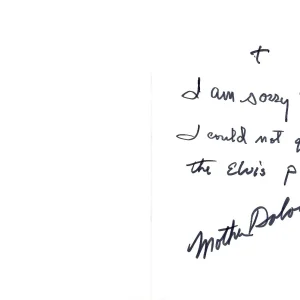 I am sorry
I could not
the Elvis
Mother